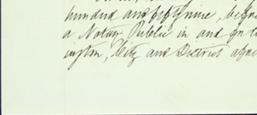 hundred and fifty nine, before
a Notary Public in and for
ington, City and District afore